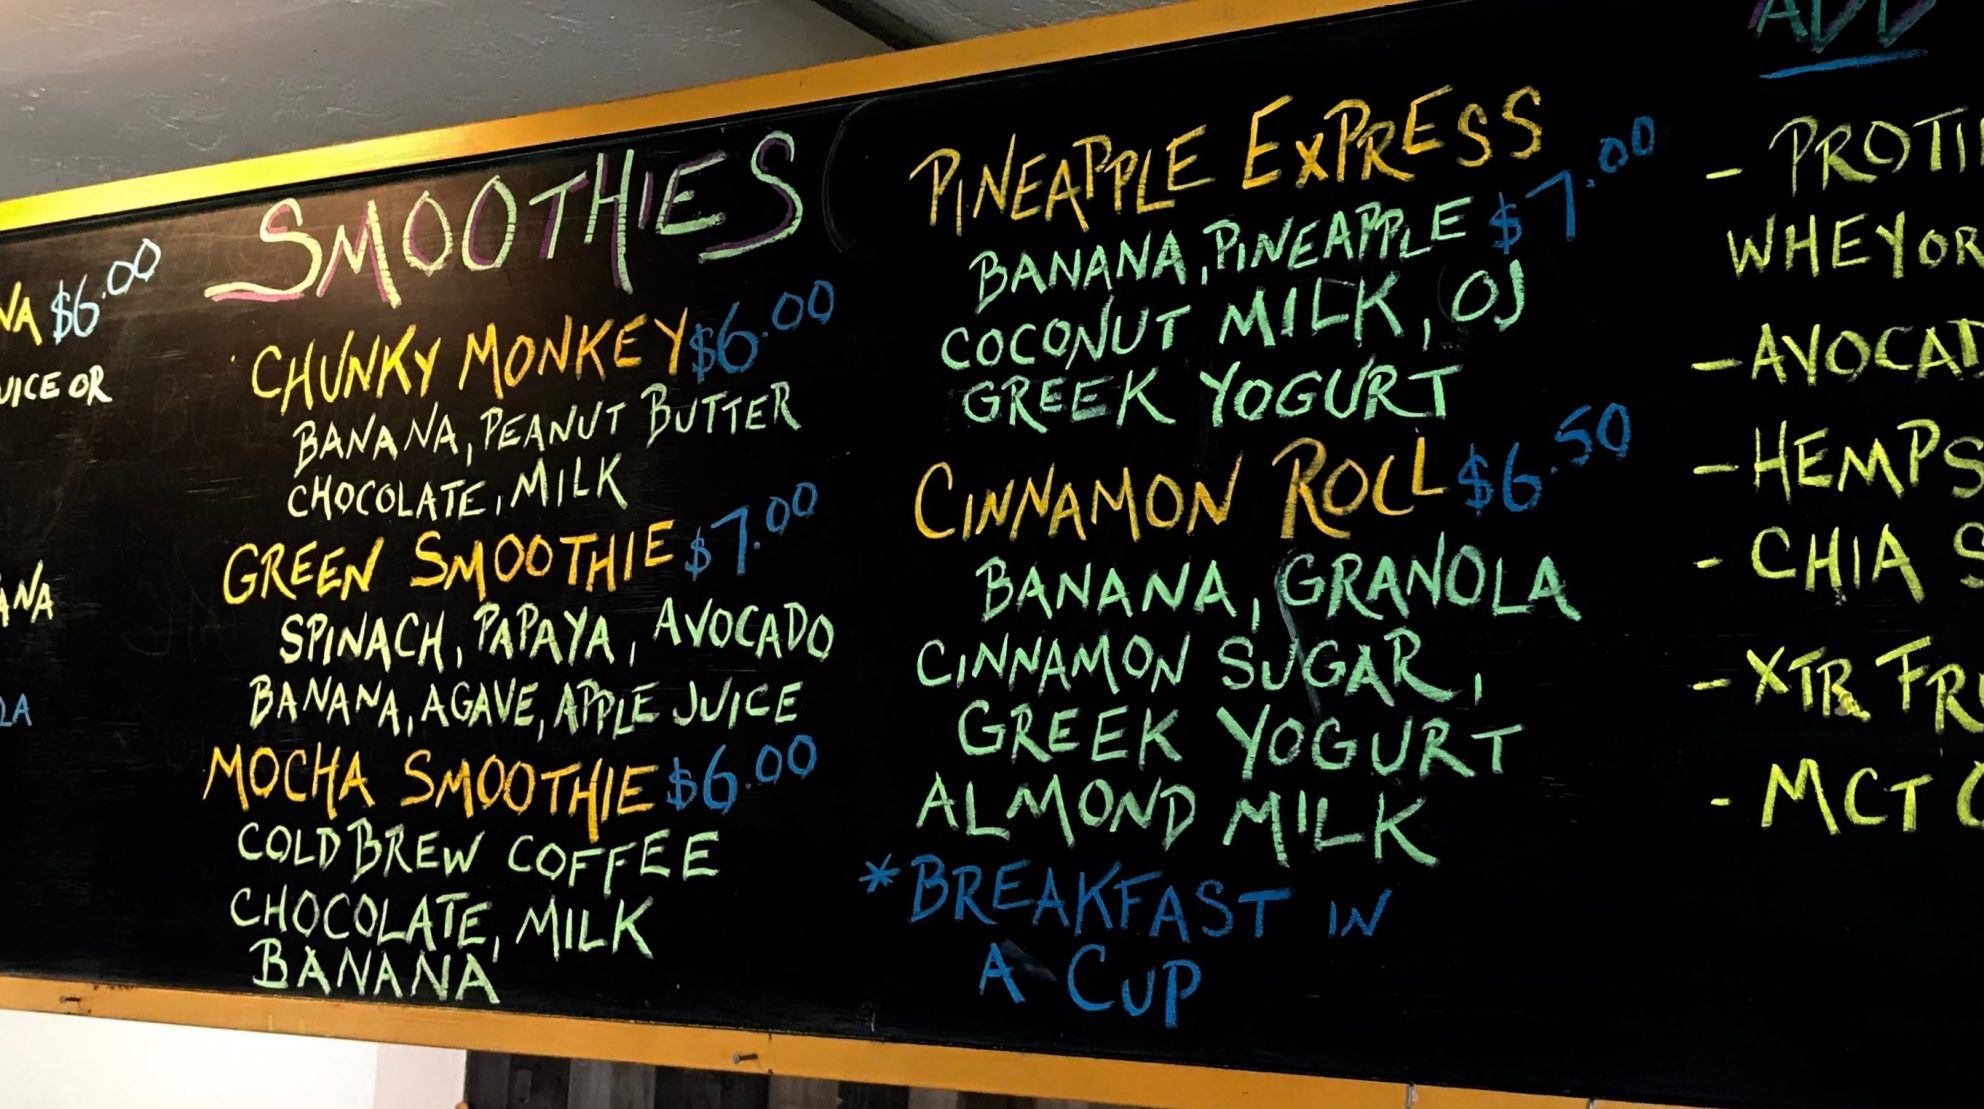 $6.00
OR
SMOOTHIES
CHUNKY MONKEY $6.00
BANANA, PEANUT BUTTER
CHOCOLATE, MILK
GREEN SMOOTHIE $7.00
SPINACH, PAPAYA, AVOCADO
BANANA, AGAVE, APPLE JUICE
MOCHA SMOOTHIE $6.00
COLD BREW COFFEE
CHOCOLATE, MILK
BANANA
PINEAPPLE EXPRESS
BANANA, PINEAPPLE $7.00
COCONUT MILK, OJ
GREEK YOGURT
CINNAMON ROLL $6.50
BANANA, GRANOLA
CINNAMON SUGAR,
GREEK YOGURT
ALMOND MILK
*BREAKFAST IN
A CUP
ADD
- PROTI
WHEY OR
- AVOCAD
- HEMP S
- CHIA S
- XTR FR
- MCT